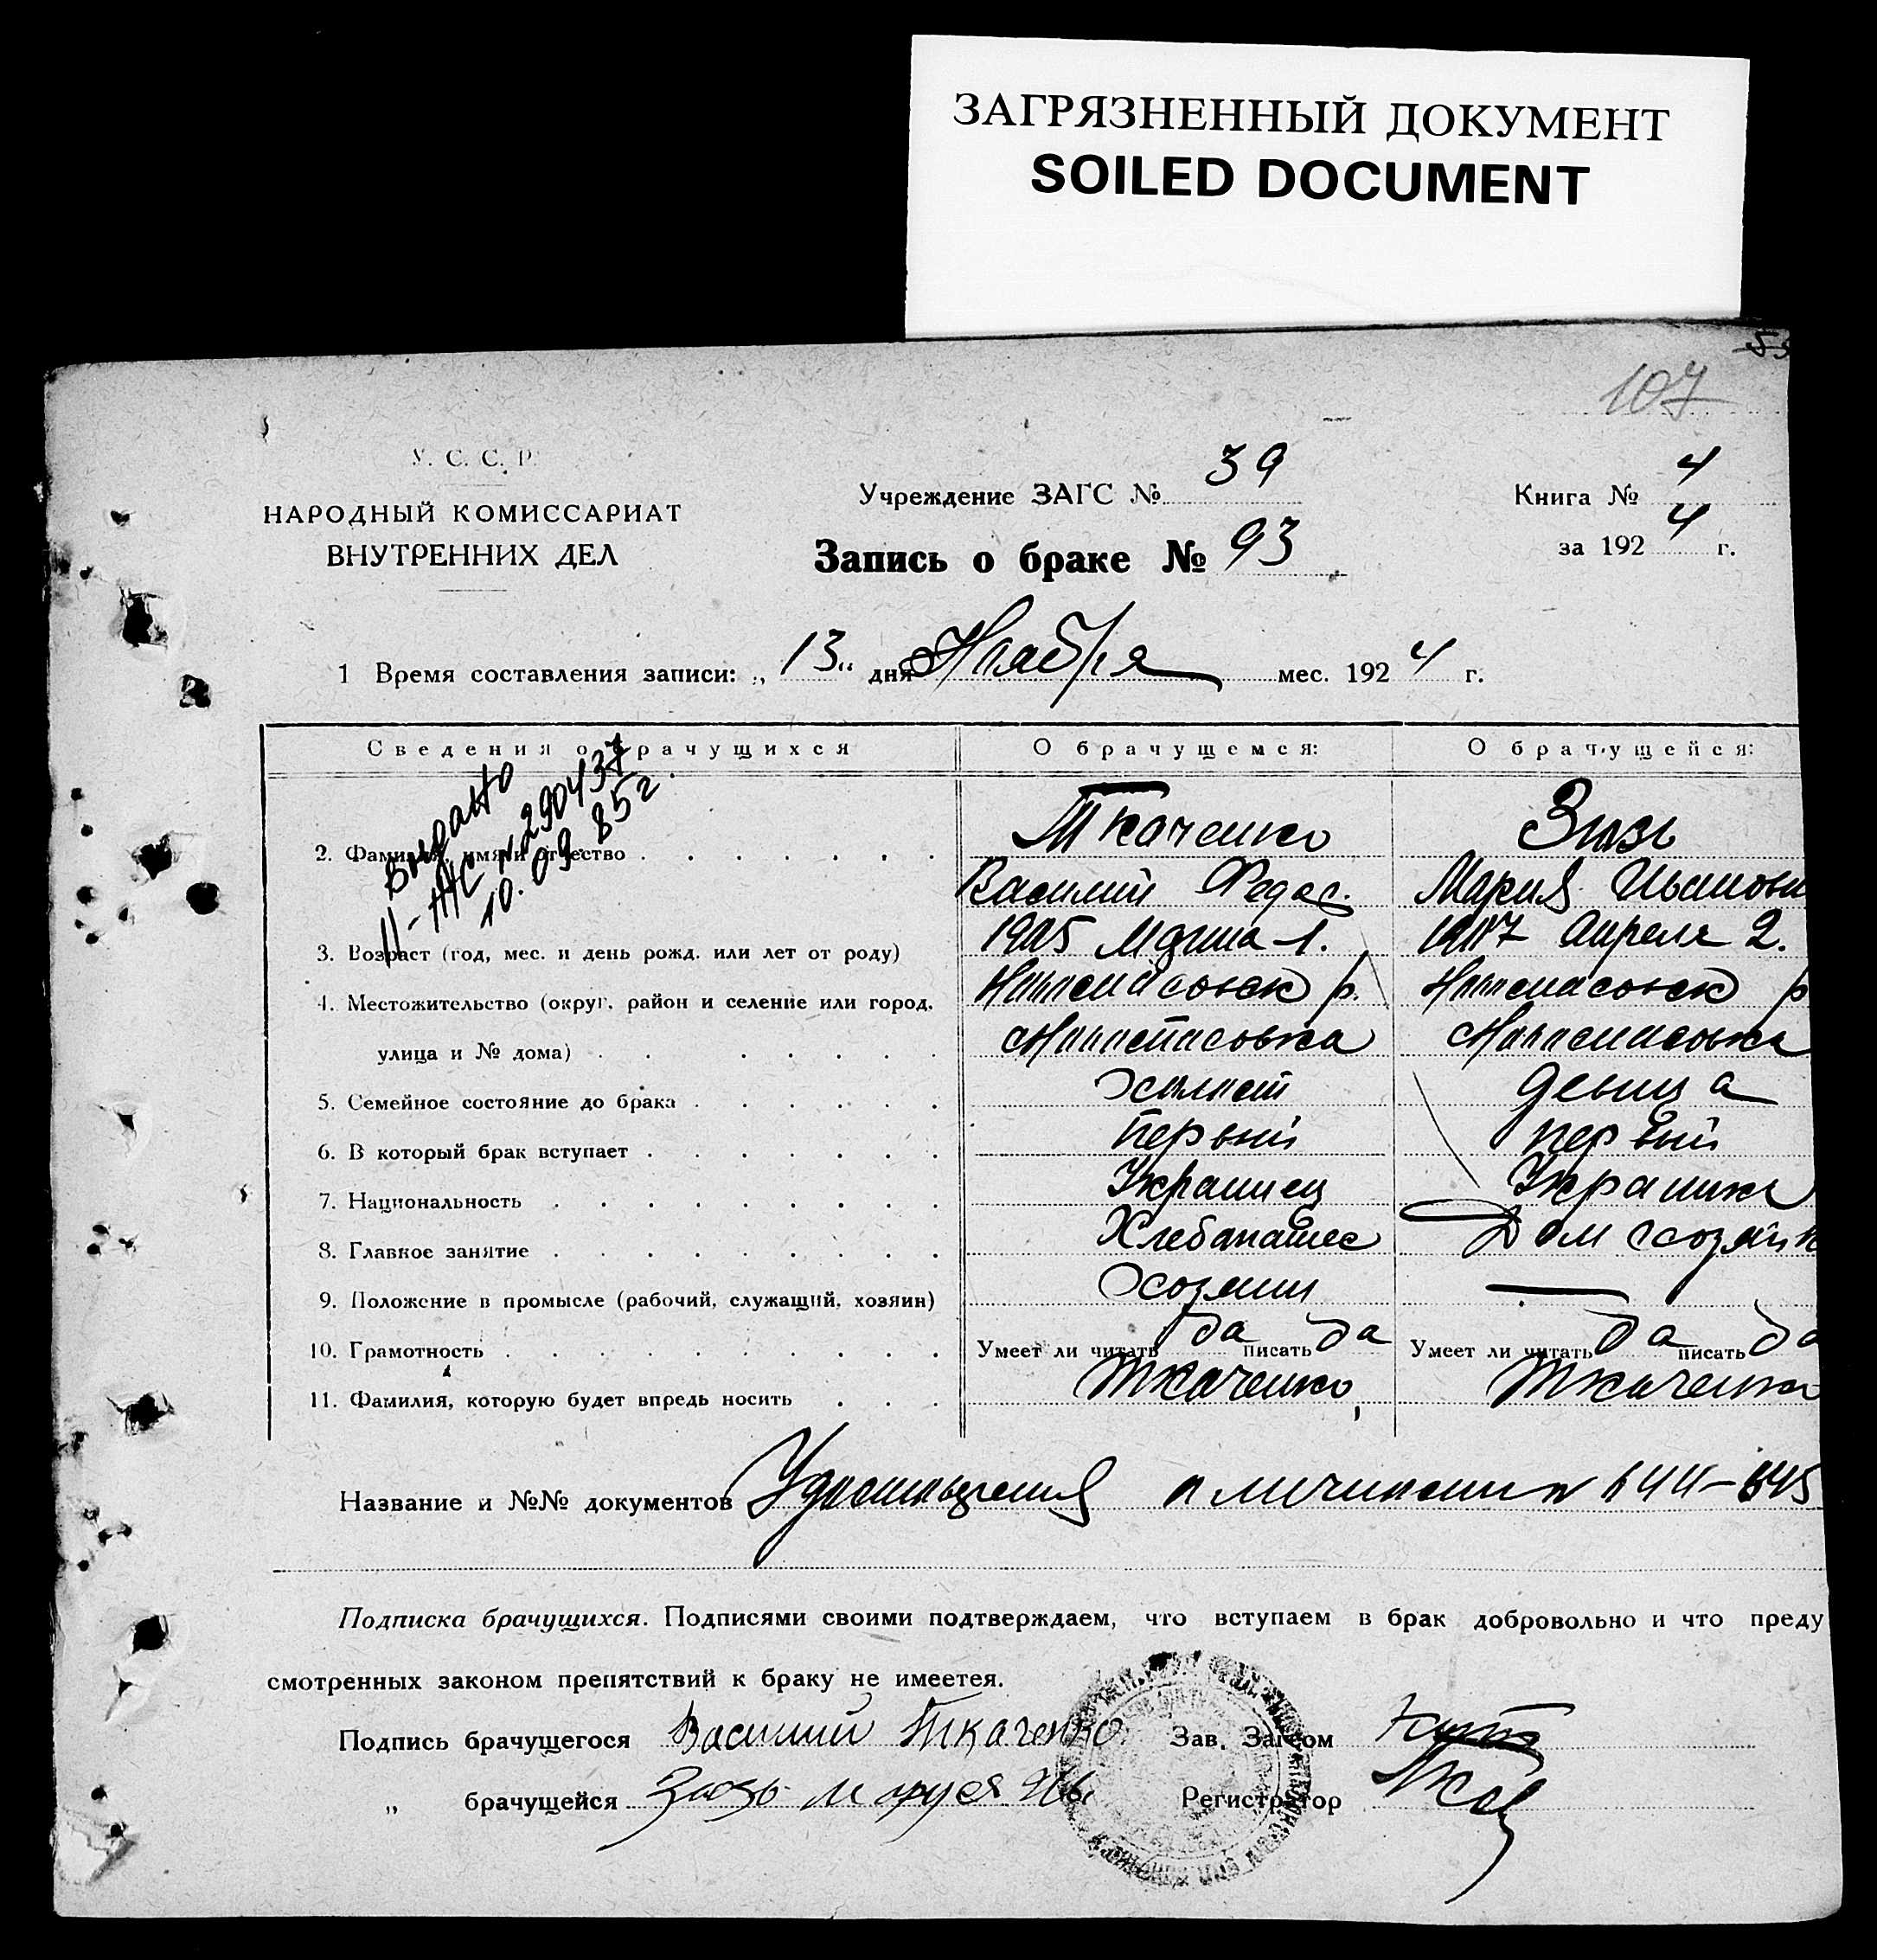 ЗАГРЯЗНЕННЫЙ ДОКУМЕНТ
SOILED DOCUMENT
107
У. С. С. Р.
НАРОДНЫЙ КОМИССАРИАТ
ВНУТРЕННИХ ДЕЛ
Учреждение ЗАГС № 39
Книга № 4
Запись о браке № 93
за 1924 г.
1 Время составления записи: „13" дня Ноября мес. 1924 г.
Сведения о брачущихся О брачущемся: О брачущейся:
Выдано
II-ЖС № 290437
10.09.85г.
2. Фамилия, имя и отчество Ткаченко Зизь
Василий Федос. Мария Ивановн
3. Возраст (год, мес. и день рожд. или лет от роду) 1905 1. 1907 Апреля 2.
4. Местожительство (округ, район и селение или город, р. р
улица и № дома)
5. Семейное состояние до брака Холост девица
6. В который брак вступает Первый первый
7. Национальность Украинец Украинка
8. Главное занятие Хлебопашес Дом хозяйк
9. Положение в промысле (рабочий, служащий, хозяин) Хозяин —
10. Грамотность Умеет ли читать да писать да Умеет ли читать да писать да
11. Фамилия, которую будет впредь носить Ткаченко Ткаченко
Название и №№ документов Удостоверения о личности № 644-645
Подписка брачущихся. Подписями своими подтверждаем, что вступаем в брак добровольно и что преду
смотренных законом препятствий к браку не имеетея.
Подпись брачущегося Василий Ткаченко Зав. Загсом
„ брачущейся Зизь Маруся Ив. Регистратор